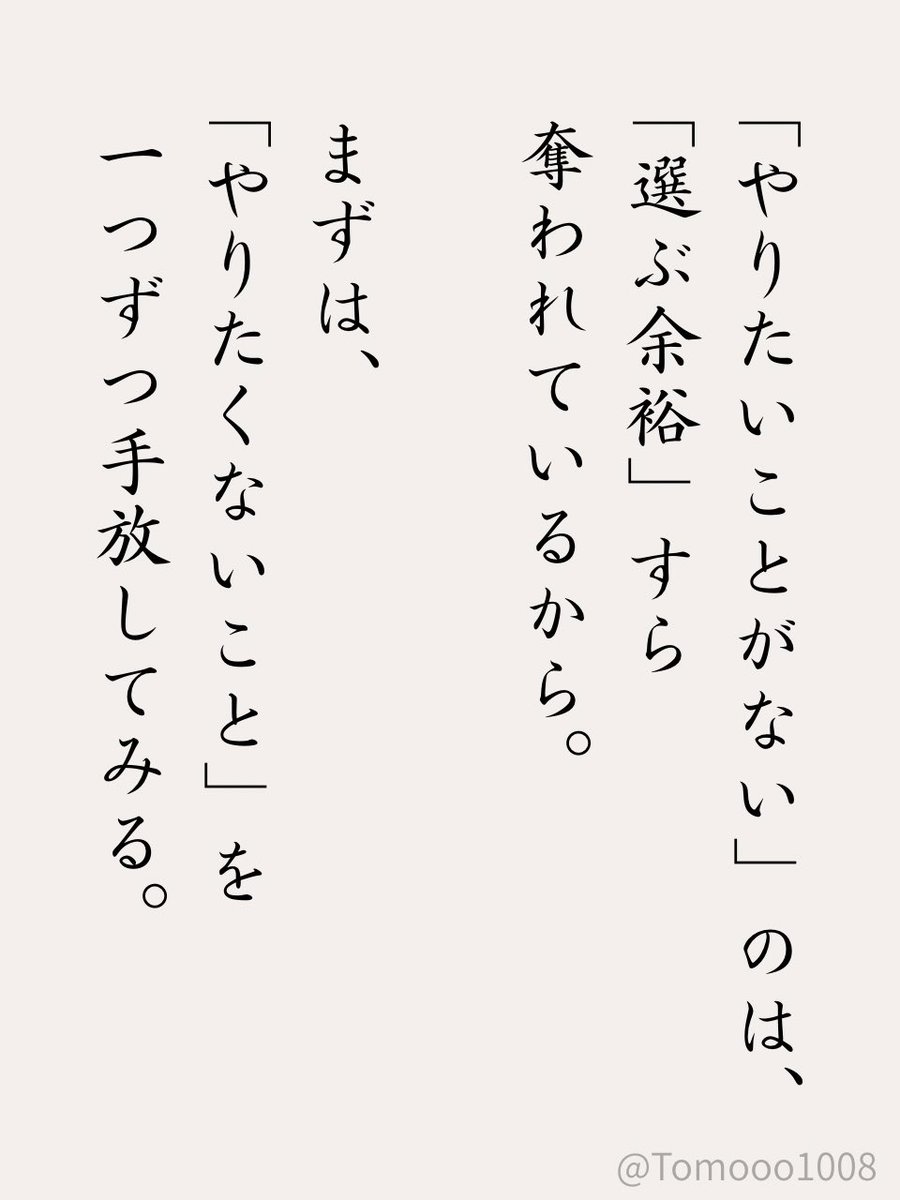 「やりたいことがない」のは、
「選ぶ余裕」すら
奪われているから。
まずは、
「やりたくないこと」を
一つずつ手放してみる。
@Tomooo1008